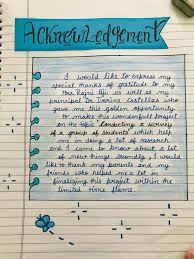 Acknowledgement
I would like to express my
special thanks of gratitude to my
Mrs Rajni Aji as well as my
principal Dr Ivonne Castellas who
gave me the golden opportunity
to make this wonderful project
on the topic Conducting a survey
of a group of students which help
me in doing a lot of research
and I came to know about a lot
of new things. Secondly, I would
like to thank my parents and my
friends who helped me a lot in
finalizing this project within the
limited time frame